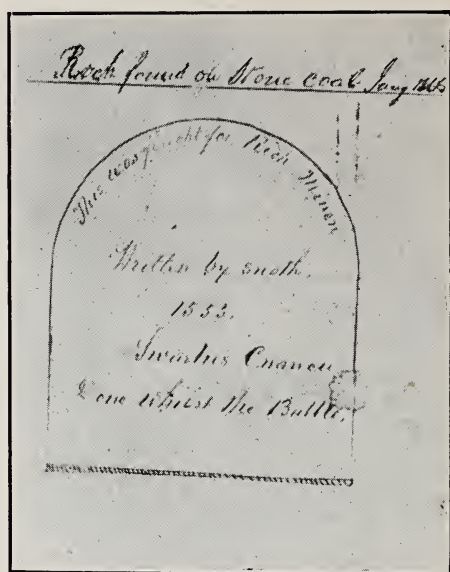 Rock found on Stone coal Jany
This was fought for Rich Minen
Written by snath.
1553.
Swartus Cnanou
Done whilst the Battle.